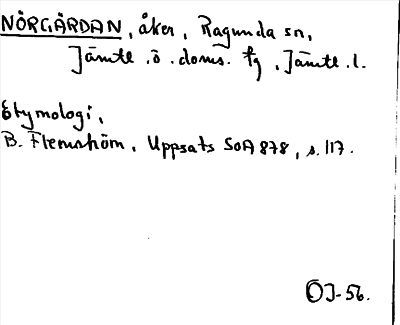 NÖRGÄRDAN, åker, Ragunda sn,
Jämtl. ö. doms. fg, Jämtl. l.
Etymologi,
B. Flemström, Uppsats SOA 878, s. 117.
OJ-56.